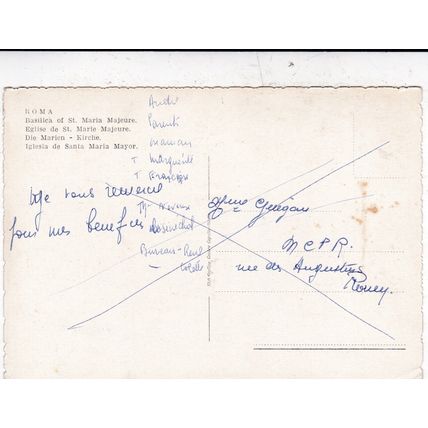 ROMA
Basilica of St. Maria Majeure.
Eglise de St. Marie Majeure.
Die Marien - Kirche.
Iglesia de Santa Maria Mayor.
André
Parents
maman
T Marguerite
T Françoise
Je vous remercie
pour mes
Bureau
Mme Guégan
M C P R.
rue des Augustins
Rouen.